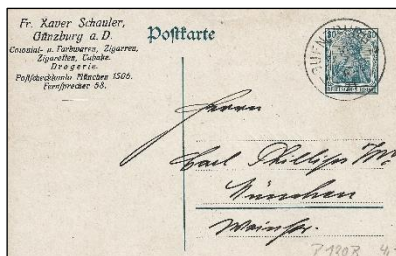 Fr. Xaver Schauler,
Günzburg a. D.
Colonial- u. Farbwaren, Zigarren,
Zigaretten, Tabake.
Drogerie.
Postscheckkonto München 1506.
Fernsprecher 58.
Postkarte
30 30
Herrn
Carl Phillipp
München
P 120 R 4,-